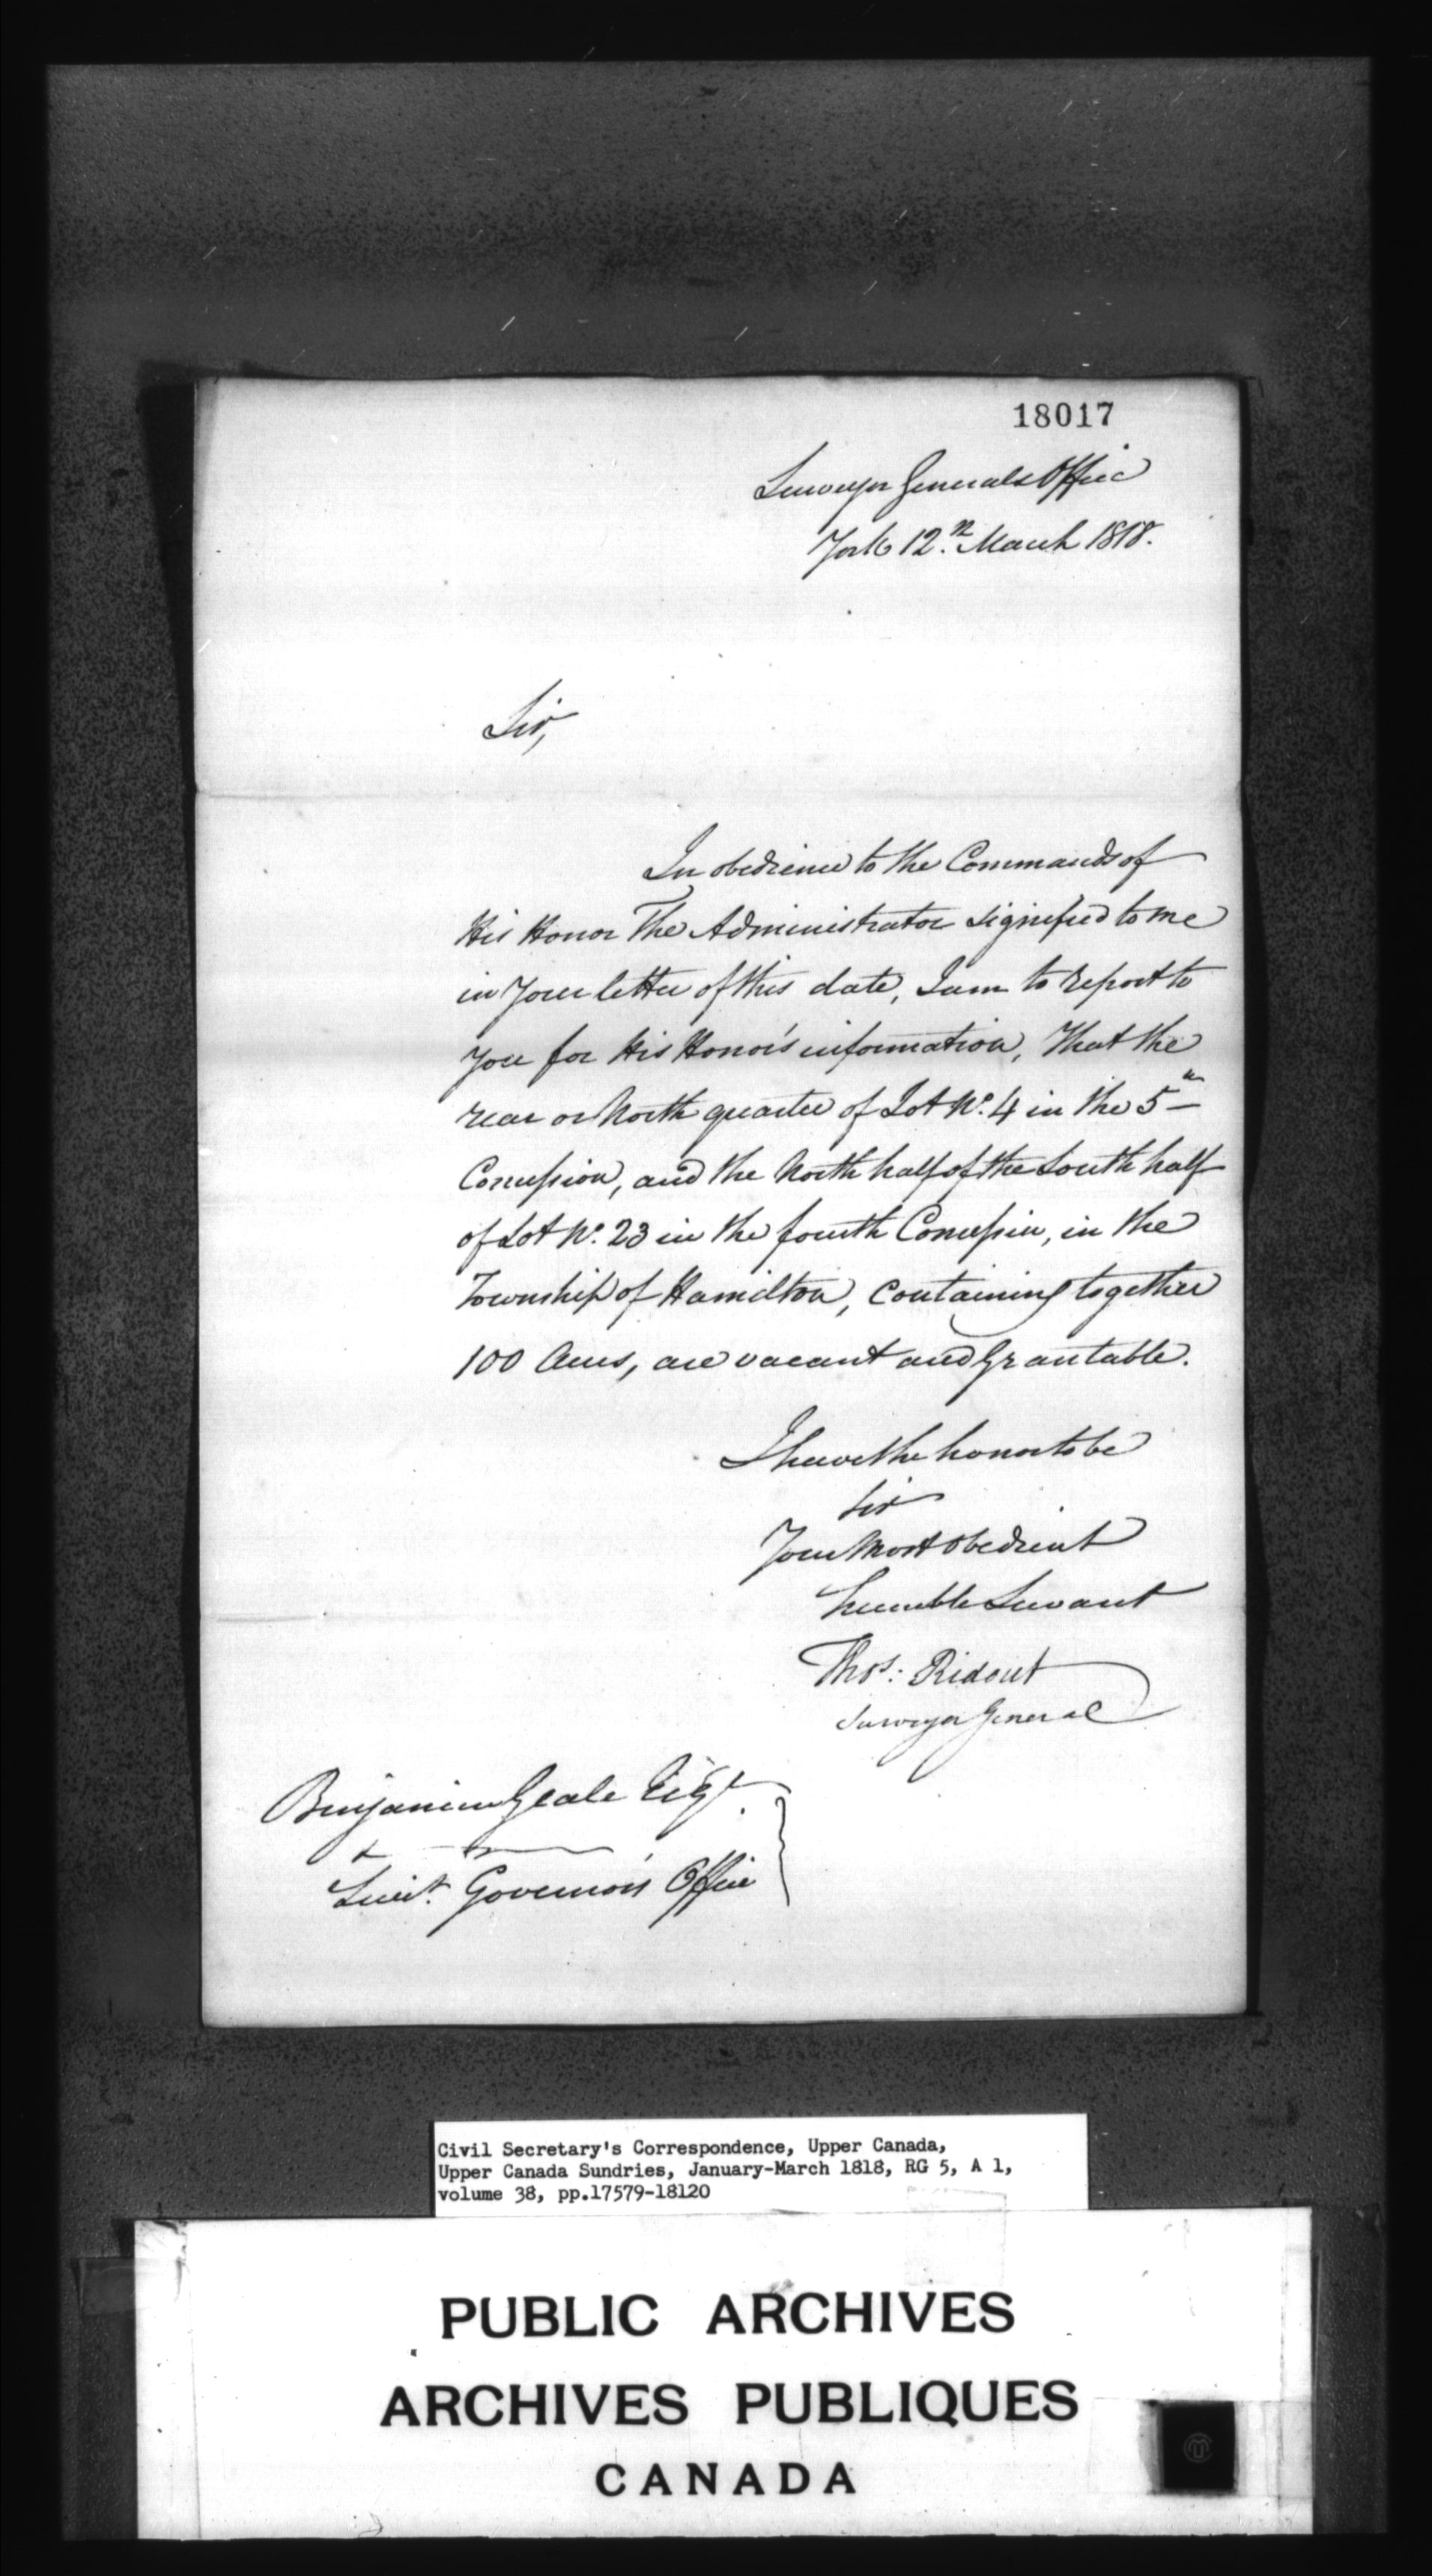 18017
Surveyor Generals Office
York 12.th March 1818.
Sir,
In obedience to the Commands of
His Honor The Administrator signified to me
in your letter of this date, I am to report to
you for His Honor's information, That the
rear or North quarter of Lot No. 4 in the 5th
Concession, and the North half of the South half
of Lot No. 23 in the fourth Concession, in the
Township of Hamilton, containing together
100 Acres, are vacant and Grantable.
I have the honor to be
Sir
Your Most Obedient
humble Servant
Thos: Ridout
Surveyor General
Benjamin Geale Esqr.
Lieut. Governor's Office
Civil Secretary's Correspondence, Upper Canada,
Upper Canada Sundries, January-March 1818, RG 5, A 1,
volume 38, pp.17579-18120
PUBLIC ARCHIVES
ARCHIVES PUBLIQUES
CANADA